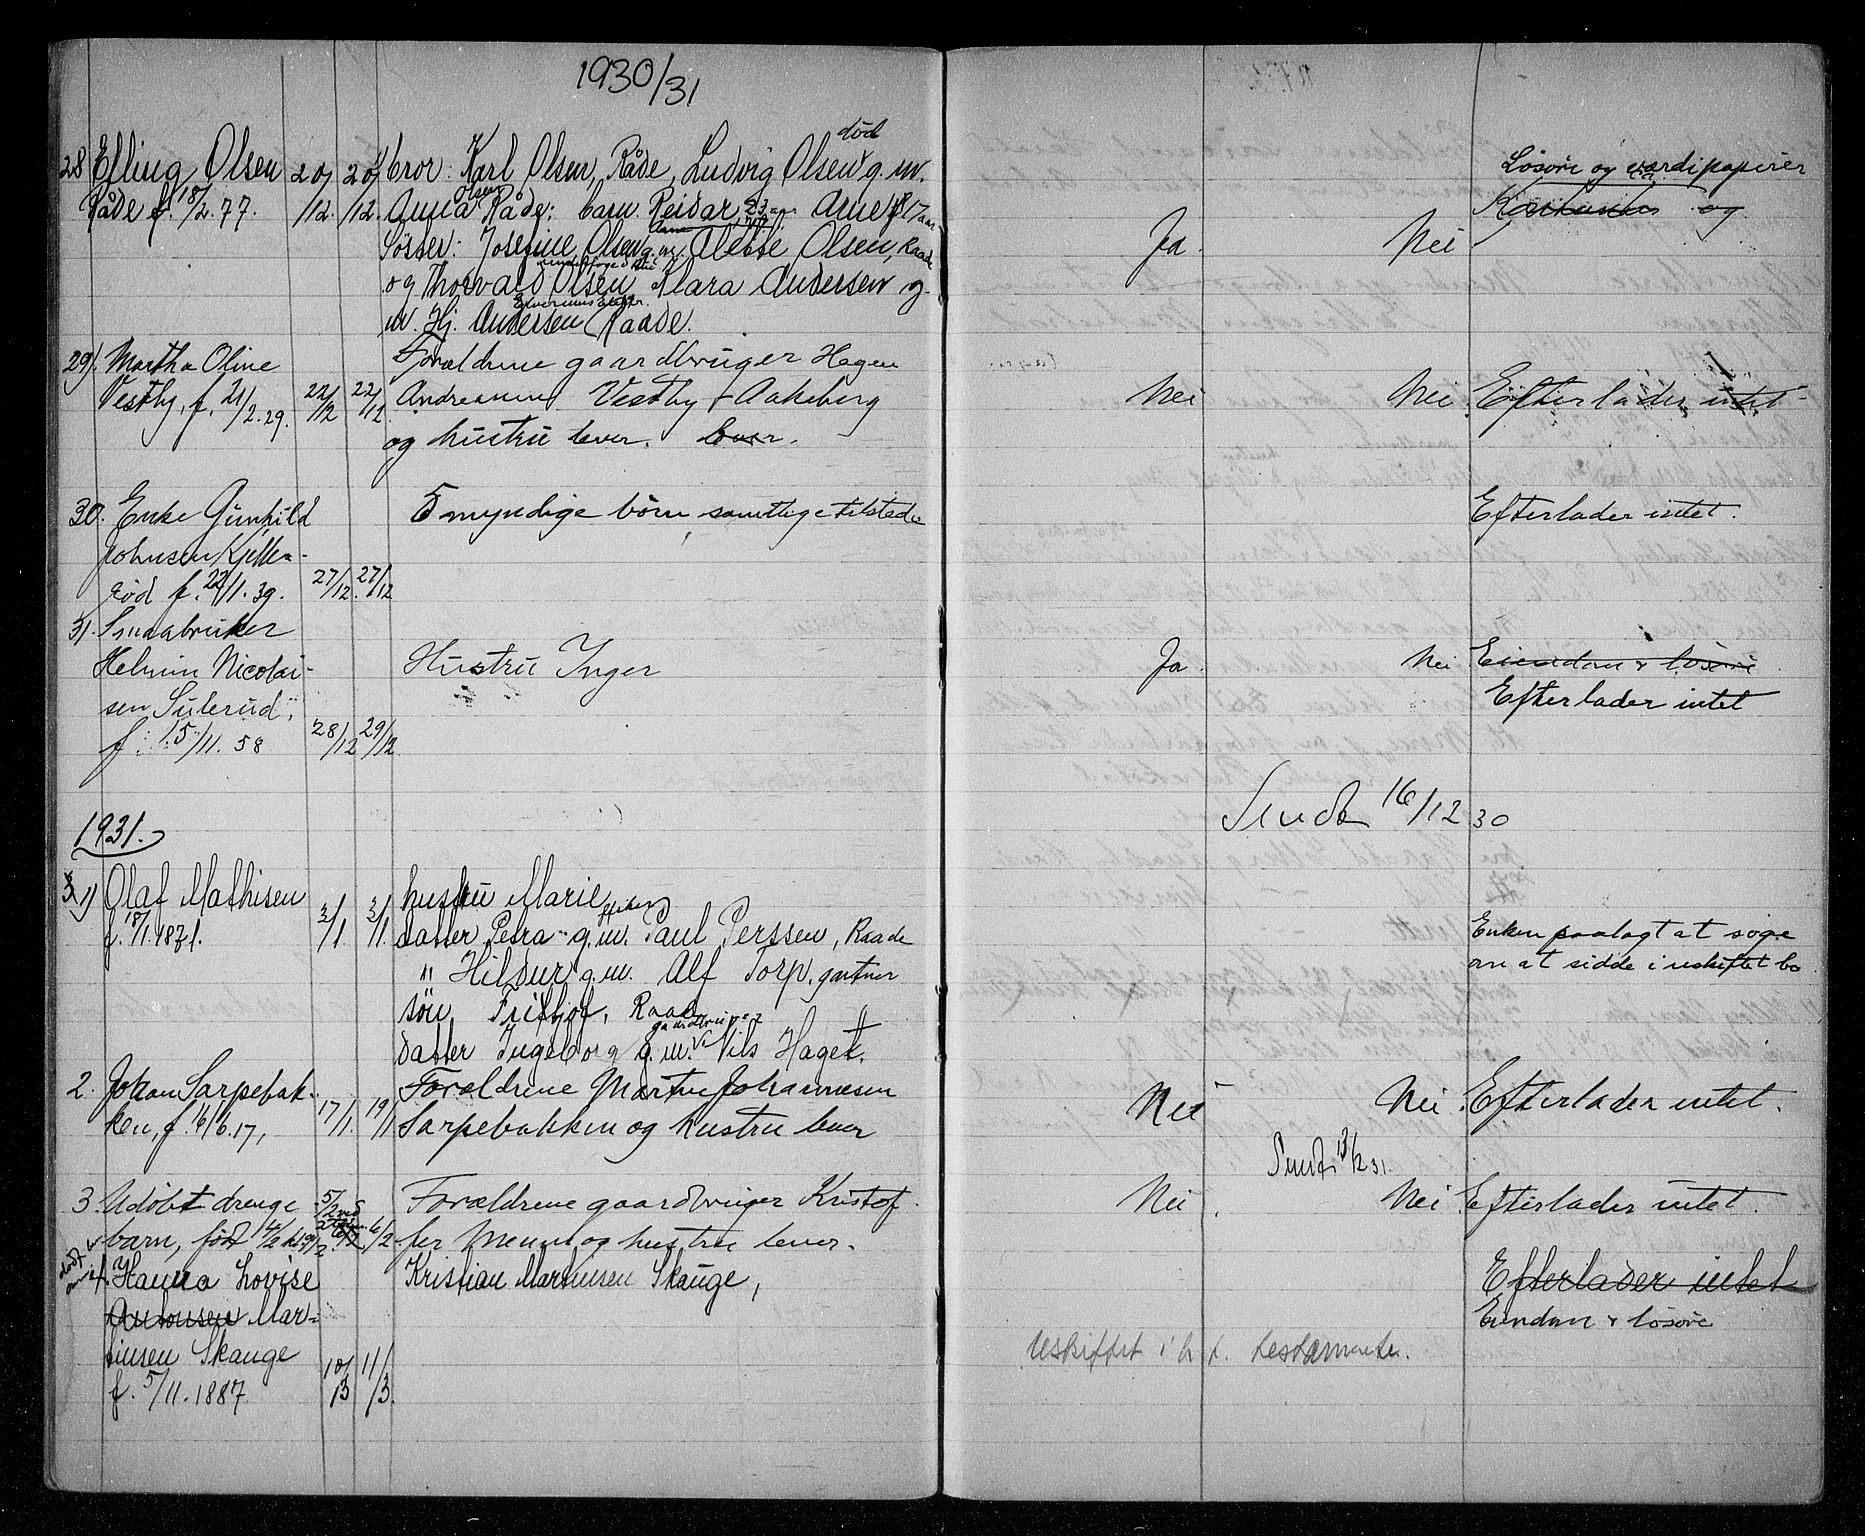 1930/31
28 Elling Olsen 20/12. 20/12. bror: Karl Olsen, Råde, Ludvig Olsen død g. m.
Råde f. 18/2. 77. Anna Olsen Råde: barn Reidar 23 aar Arne 17 aar
Søster: Josefine Olsen g. m. Olsen, Raade Ja Nei
og Thorvald Olsen Klara Andersen g.
m. Hj. Andersen Raade.
Løsøre og værdipapirer
og
29). Martha Oline Forældrene gaardbruger Hagen
Vestby, f. 21/2. 29. 22/12 22/12 Andreassen Vestby Aakeberg Nei Nei Efterlader intet
og hustru lever. lever.
30. Enke Gunhild 5 myndige børn samtlige tilstede Efterlader intet.
Johnsen Kjelle-
rød f. 22/1. 39. 27/12. 27/12
31. Smaabruker
Helmin Nicolai- Hustru Inger Ja. Nei Eiendom & løsøre
sen Sulerud, Efterlader intet
f. 15/11. 58 28/12 29/12
Sendt 16/12 30
1931.
1) Olaf Mathisen hustru Marie
f. 18/1. 1871. 3/1. 3/1. datter Petra g. m. Paul Perssen, Raade Enken paalagt at søge
" Hildur g. m. Alf Torp, gartner om at sidde i uskiftet bo
søn Fritjof, Raade
datter Ingeborg g. m. gaardbruger Nils Haget.
2. Johan Sarpebak- Forældrene Martin Johannesen Nei Nei Efterlader intet.
ken, f. 16/6. 17, 17/1. 19/1 Sarpebakken og hustru lever
Sendt 13/2 31.
3. Udøbt drenge 5/2 ved Forældrene gaardbruger Kristof- Nei. Nei Efterlader intet.
barn, født 4/2 6/2 fer Menn og hustru lever.
Hanna Lovise Kristian Martinsen Skauge, Efterlader intet
Antonsen Mar- Eiendom & løsøre
tinsen Skauge Uskiftet i h. t. testamente.
f. 5/11. 1887 10/3 11/3.